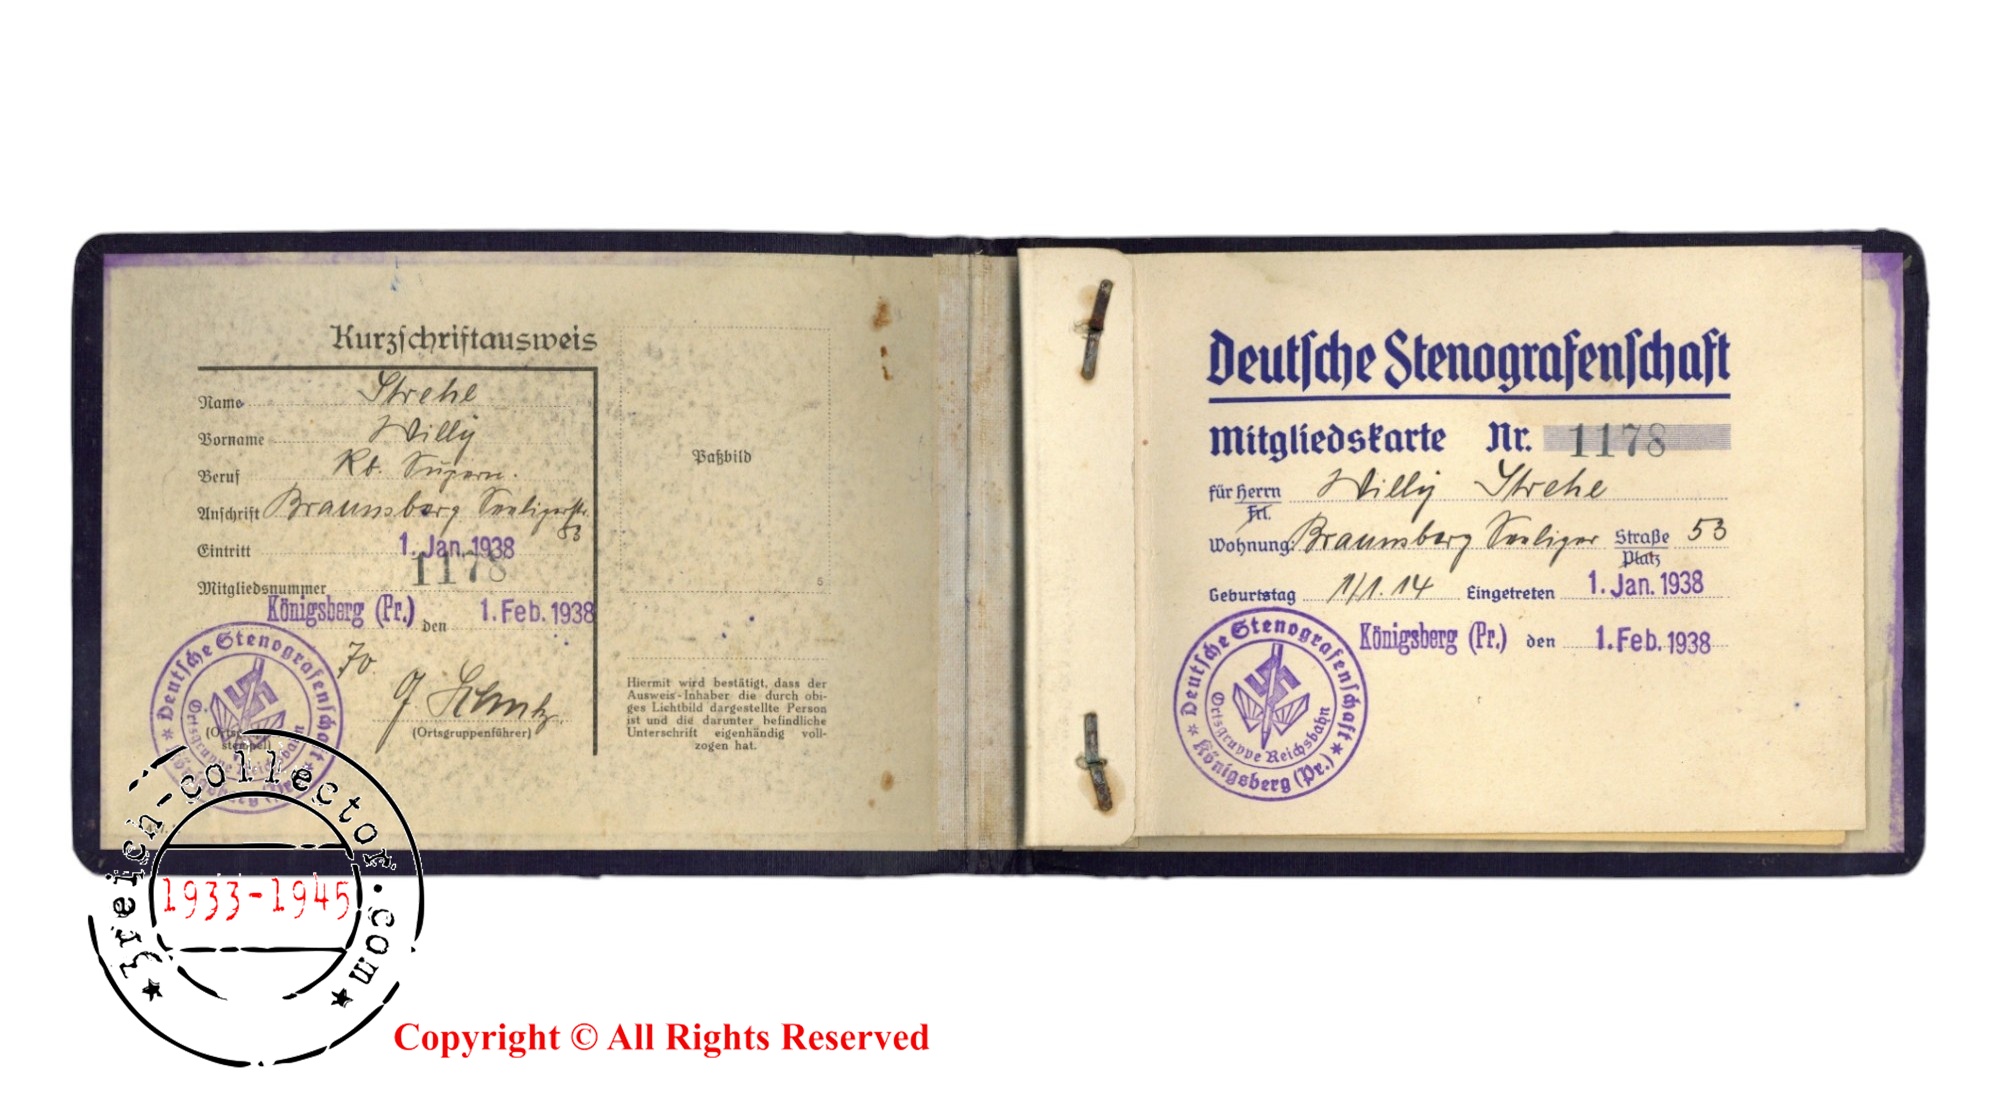 Kurzschriftausweis
Name Strehl
Vorname Willy
Beruf Rb.
Anschrift Braunsberg Seeligerstr.
53
Eintritt 1. Jan. 1938
Mitgliedsnummer 1178
Königsberg (Pr.) den 1. Feb. 1938
(Ortsgruppenführer)
Deutsche Stenografenschaft
Ortsgruppe Reichsbahn
Königsberg (Pr.)
Paßbild
5
Hiermit wird bestätigt, dass der
Ausweis-Inhaber die durch obi-
ges Lichtbild dargestellte Person
ist und die darunter befindliche
Unterschrift eigenhändig voll-
zogen hat.
Deutsche Stenografenschaft
Mitgliedskarte Nr. 1178
für Herrn Willy Strehl
Frl.
Wohnung: Braunsberg Seeliger Straße 53
Platz
Geburtstag 1/1. 14 Eingetreten 1. Jan. 1938
Königsberg (Pr.) den 1. Feb. 1938
Deutsche Stenografenschaft
Ortsgruppe Reichsbahn
Königsberg (Pr.)
3reich-collector.com
1933-1945
Copyright © All Rights Reserved